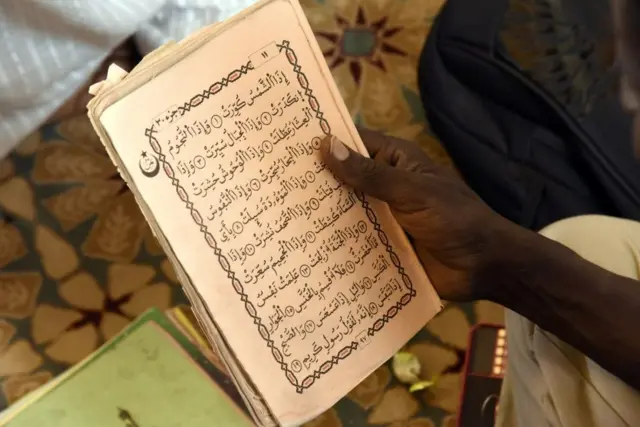 ١١
جزء ٣٠
إِذَا الشَّمْسُ كُوِّرَتْ ١ وَإِذَا النُّجُومُ
انْكَدَرَتْ ٢ وَإِذَا الْجِبَالُ سُيِّرَتْ ٣ وَإِذَا
الْعِشَارُ عُطِّلَتْ ٤ وَإِذَا الْوُحُوشُ حُشِرَتْ
٥ وَإِذَا الْبِحَارُ سُجِّرَتْ ٦ وَإِذَا النُّفُوسُ
زُوِّجَتْ ٧ وَإِذَا الْمَوْءُودَةُ سُئِلَتْ ٨ بِأَيِّ
ذَنْبٍ قُتِلَتْ ٩ وَإِذَا الصُّحُفُ نُشِرَتْ ١٠ وَإِذَا
السَّمَاءُ كُشِطَتْ ١١ وَإِذَا الْجَحِيمُ سُعِّرَتْ
١٢ وَإِذَا الْجَنَّةُ أُزْلِفَتْ ١٣ عَلِمَتْ نَفْسٌ
مَا أَحْضَرَتْ ١٤ فَلَا أُقْسِمُ بِالْخُنَّسِ ١٥ الْجَوَارِ
الْكُنَّسِ ١٦ وَاللَّيْلِ إِذَا عَسْعَسَ ١٧ وَالصُّبْحِ
إِذَا تَنَفَّسَ ١٨ إِنَّهُ لَقَوْلُ رَسُولٍ كَرِيمٍ ١٩